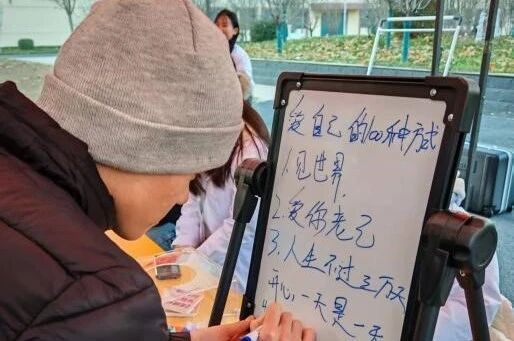 爱自己的100种方式
1.见世界
2.爱你老己
3.人生不过三万天
开心一天是一天
4